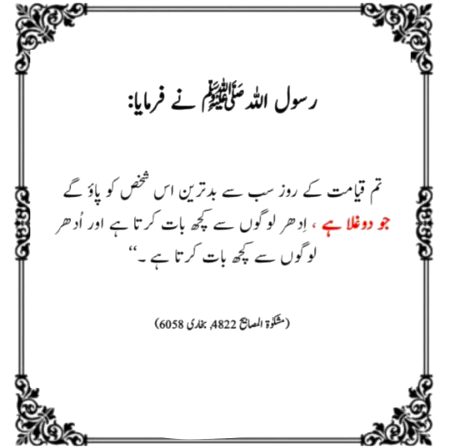 رسول اللہ ﷺ نے فرمایا:
تم قیامت کے روز سب سے بدترین اس شخص کو پاؤ گے
جو دوغلا ہے ، اِدھر لوگوں سے کچھ بات کرتا ہے اور اُدھر
لوگوں سے کچھ بات کرتا ہے ۔“
(مشکوٰۃ المصابیح 4822، بخاری 6058)